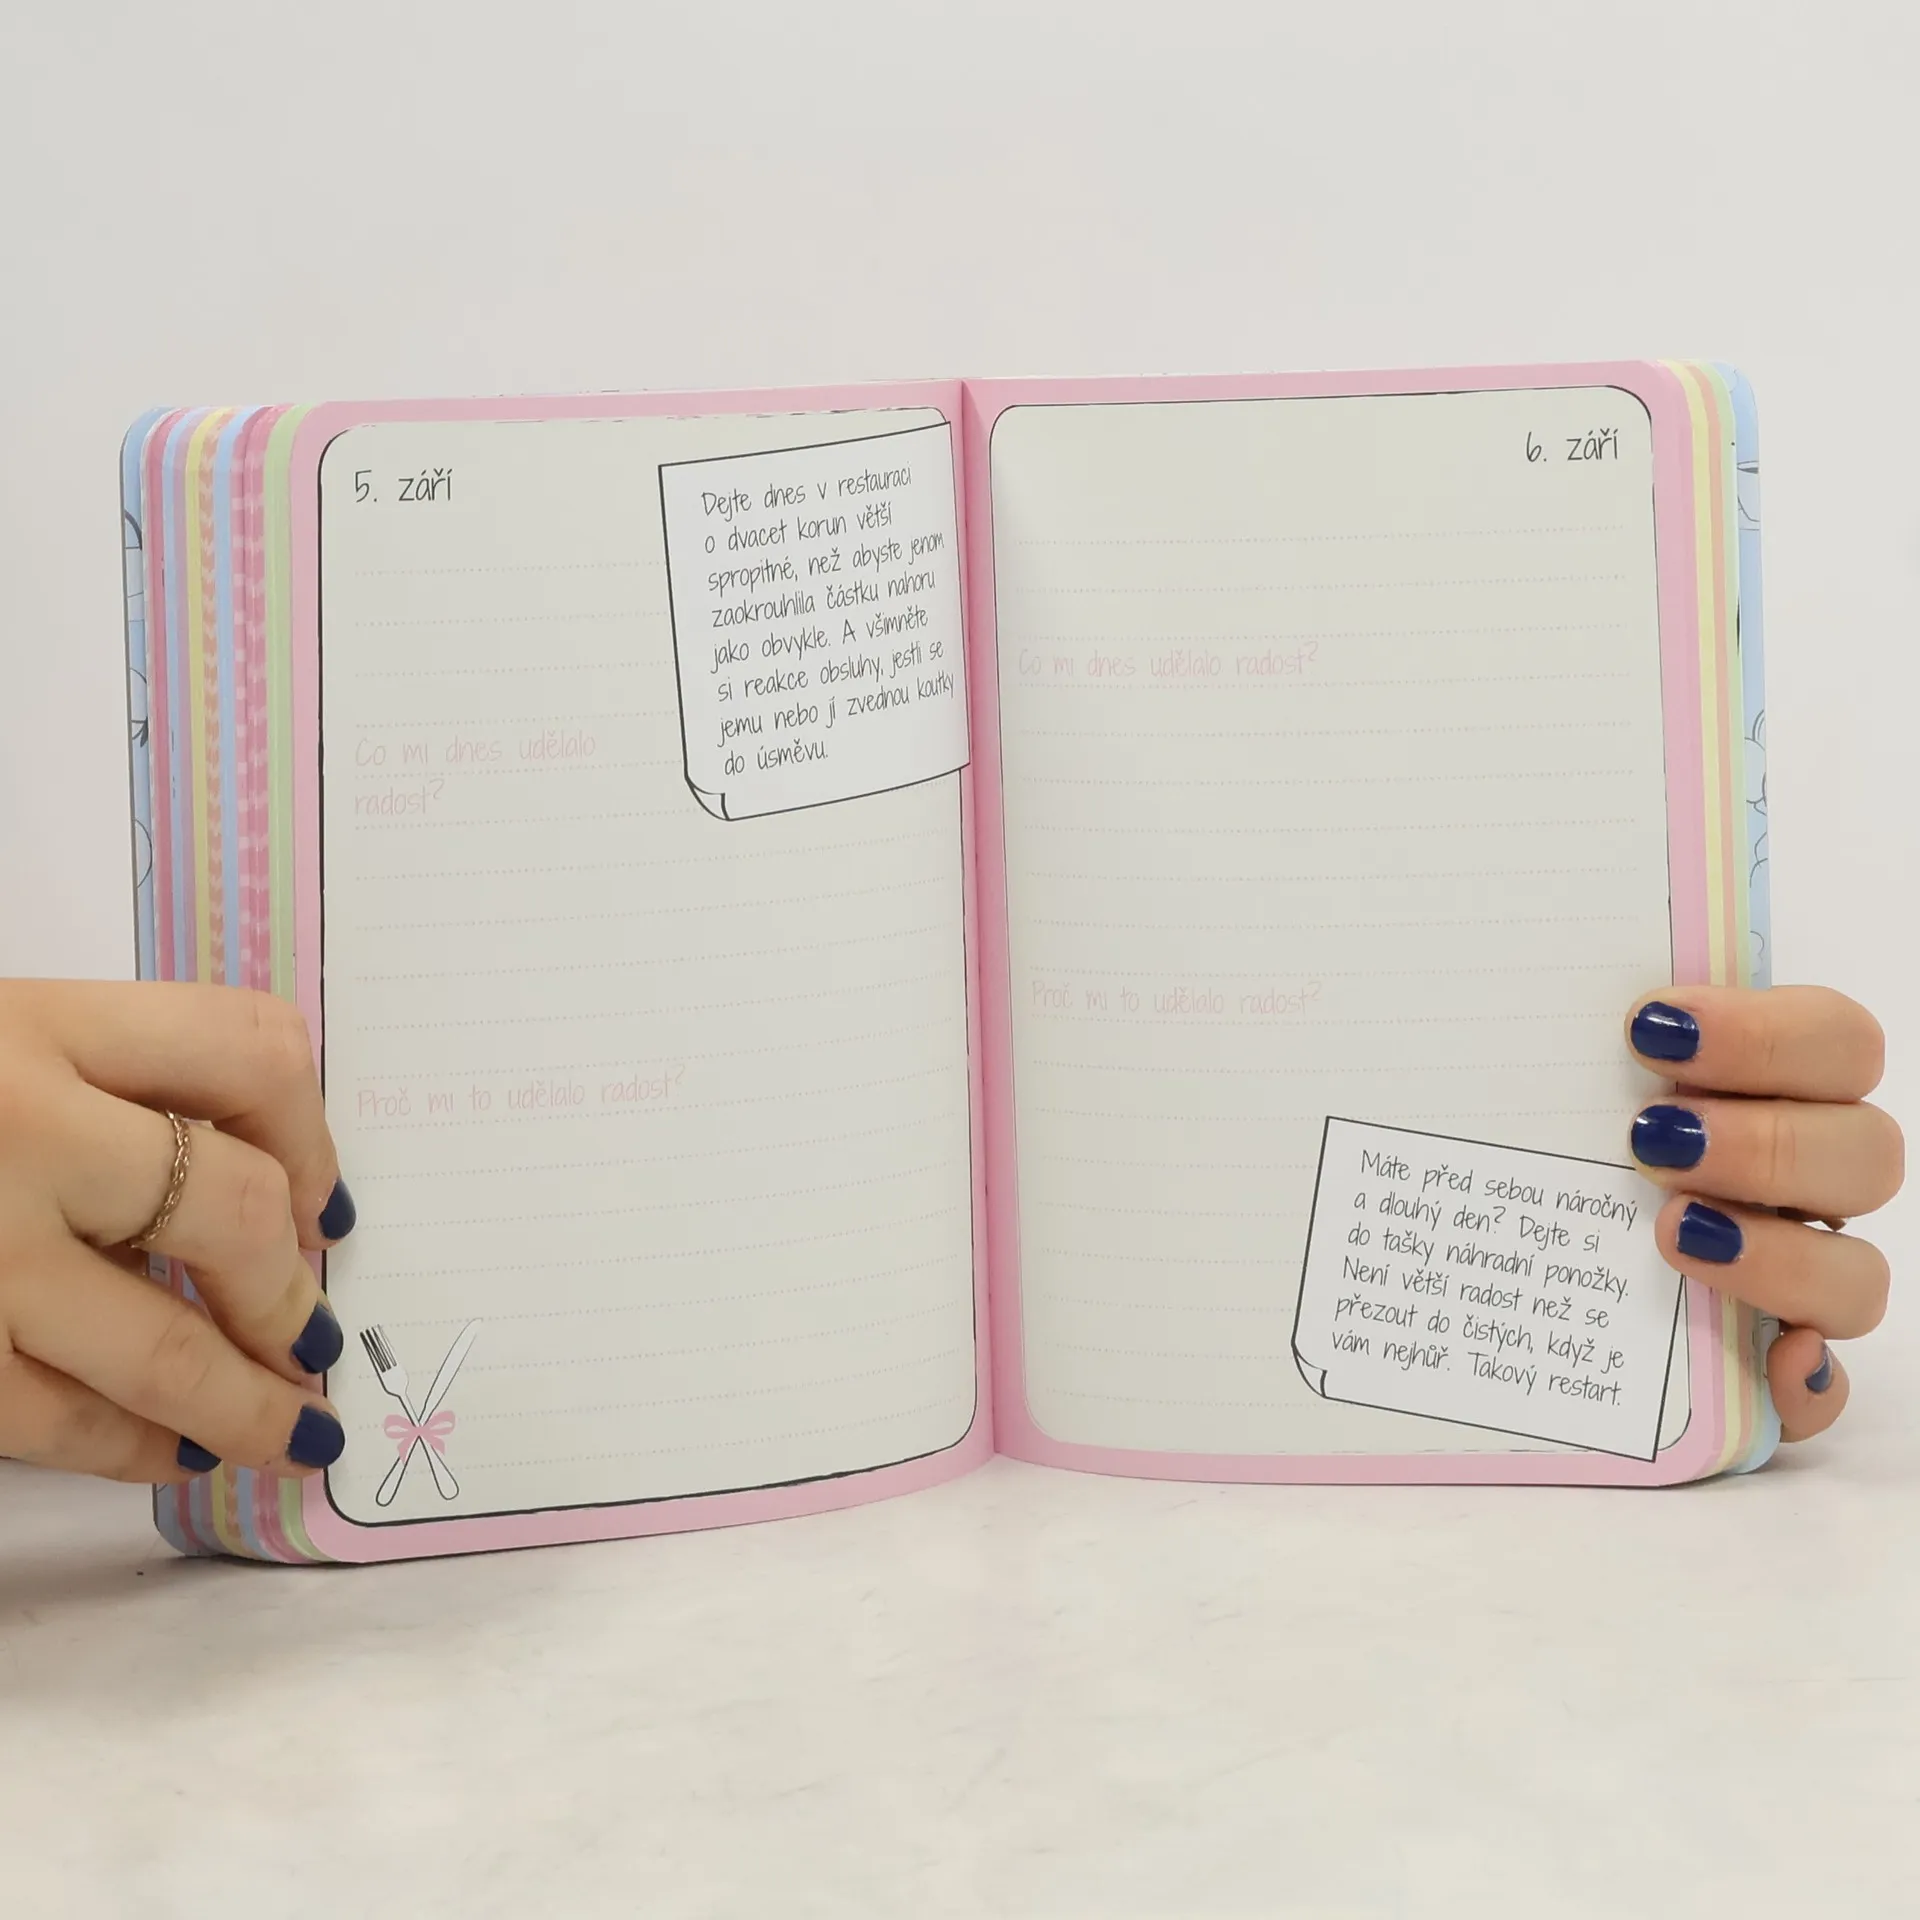 5. září
Dejte dnes v restauraci
o dvacet korun větší
spropitné, než abyste jenom
zaokrouhlila částku nahoru
jako obvykle. A všimněte
si reakce obsluhy, jestli se
jemu nebo jí zvednou koutky
do úsměvu.
Co mi dnes udělalo
radost?
Proč mi to udělalo radost?
6. září
Co mi dnes udělalo radost?
Proč mi to udělalo radost?
Máte před sebou náročný
a dlouhý den? Dejte si
do tašky náhradní ponožky.
Není větší radost než se
přezout do čistých, když je
vám nejhůř. Takový restart.